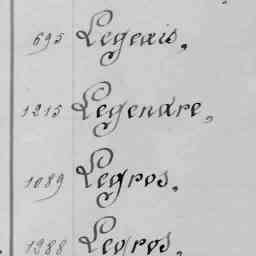 695 Legeais.
1215 Legendre.
1089 Legros.
1288 Legros.